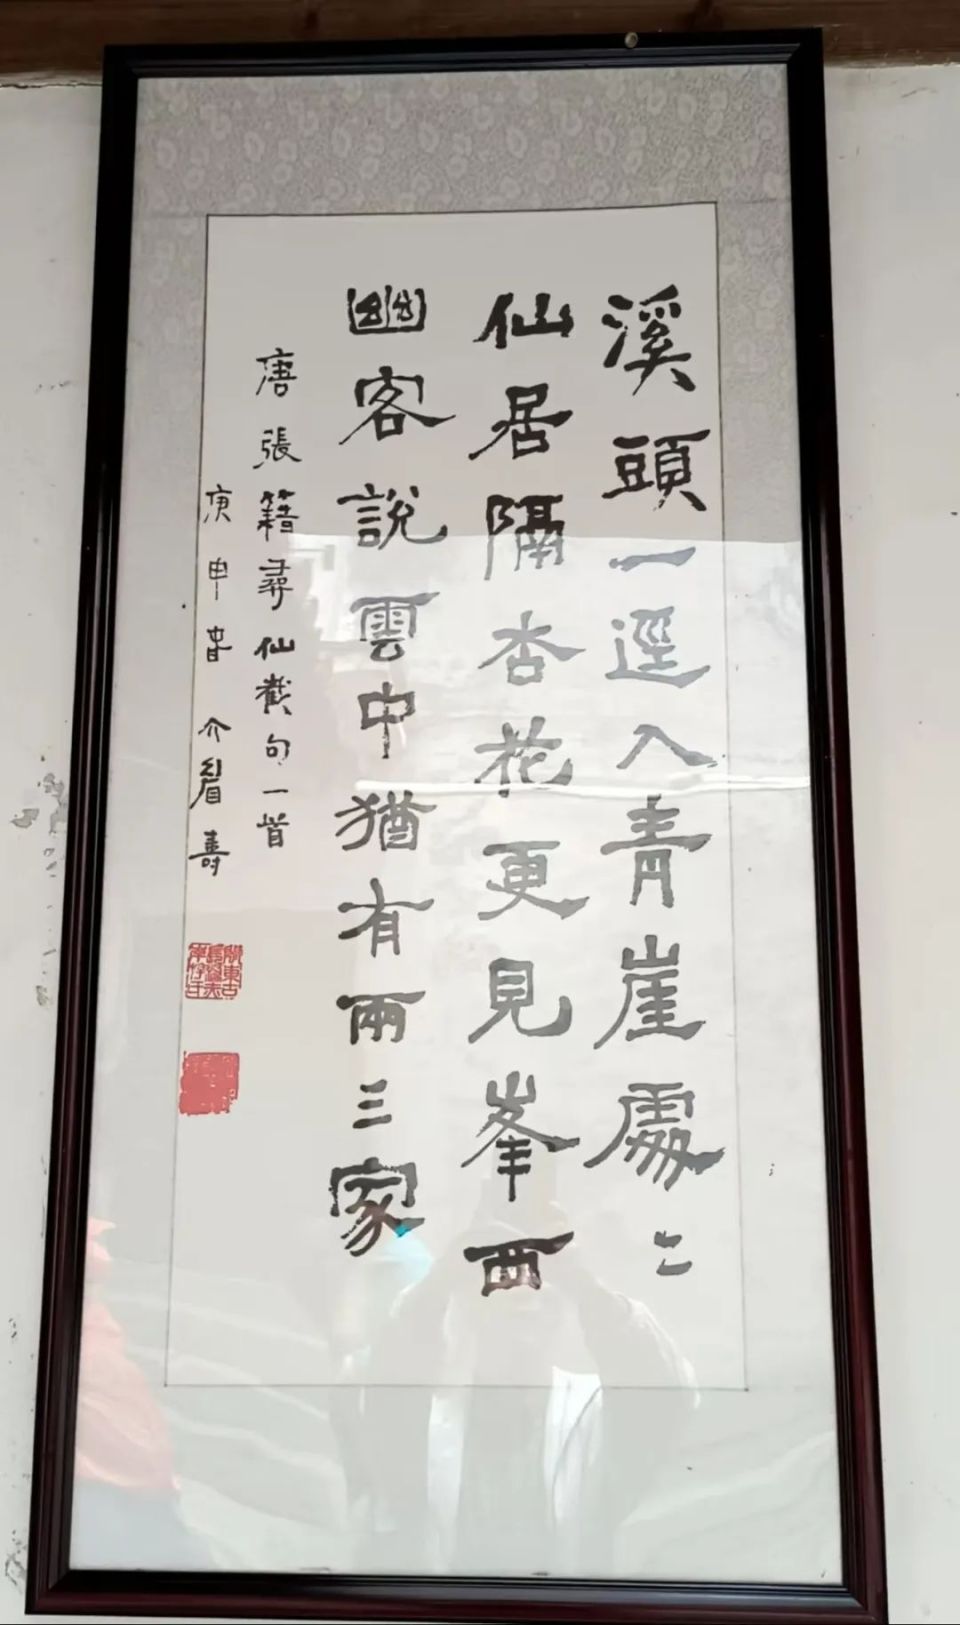 溪頭一逕入青崖處二
仙居隔杏花更見峯西
幽客說雲中猶有兩三家
唐張籍尋仙截句一首
庚申春介眉壽